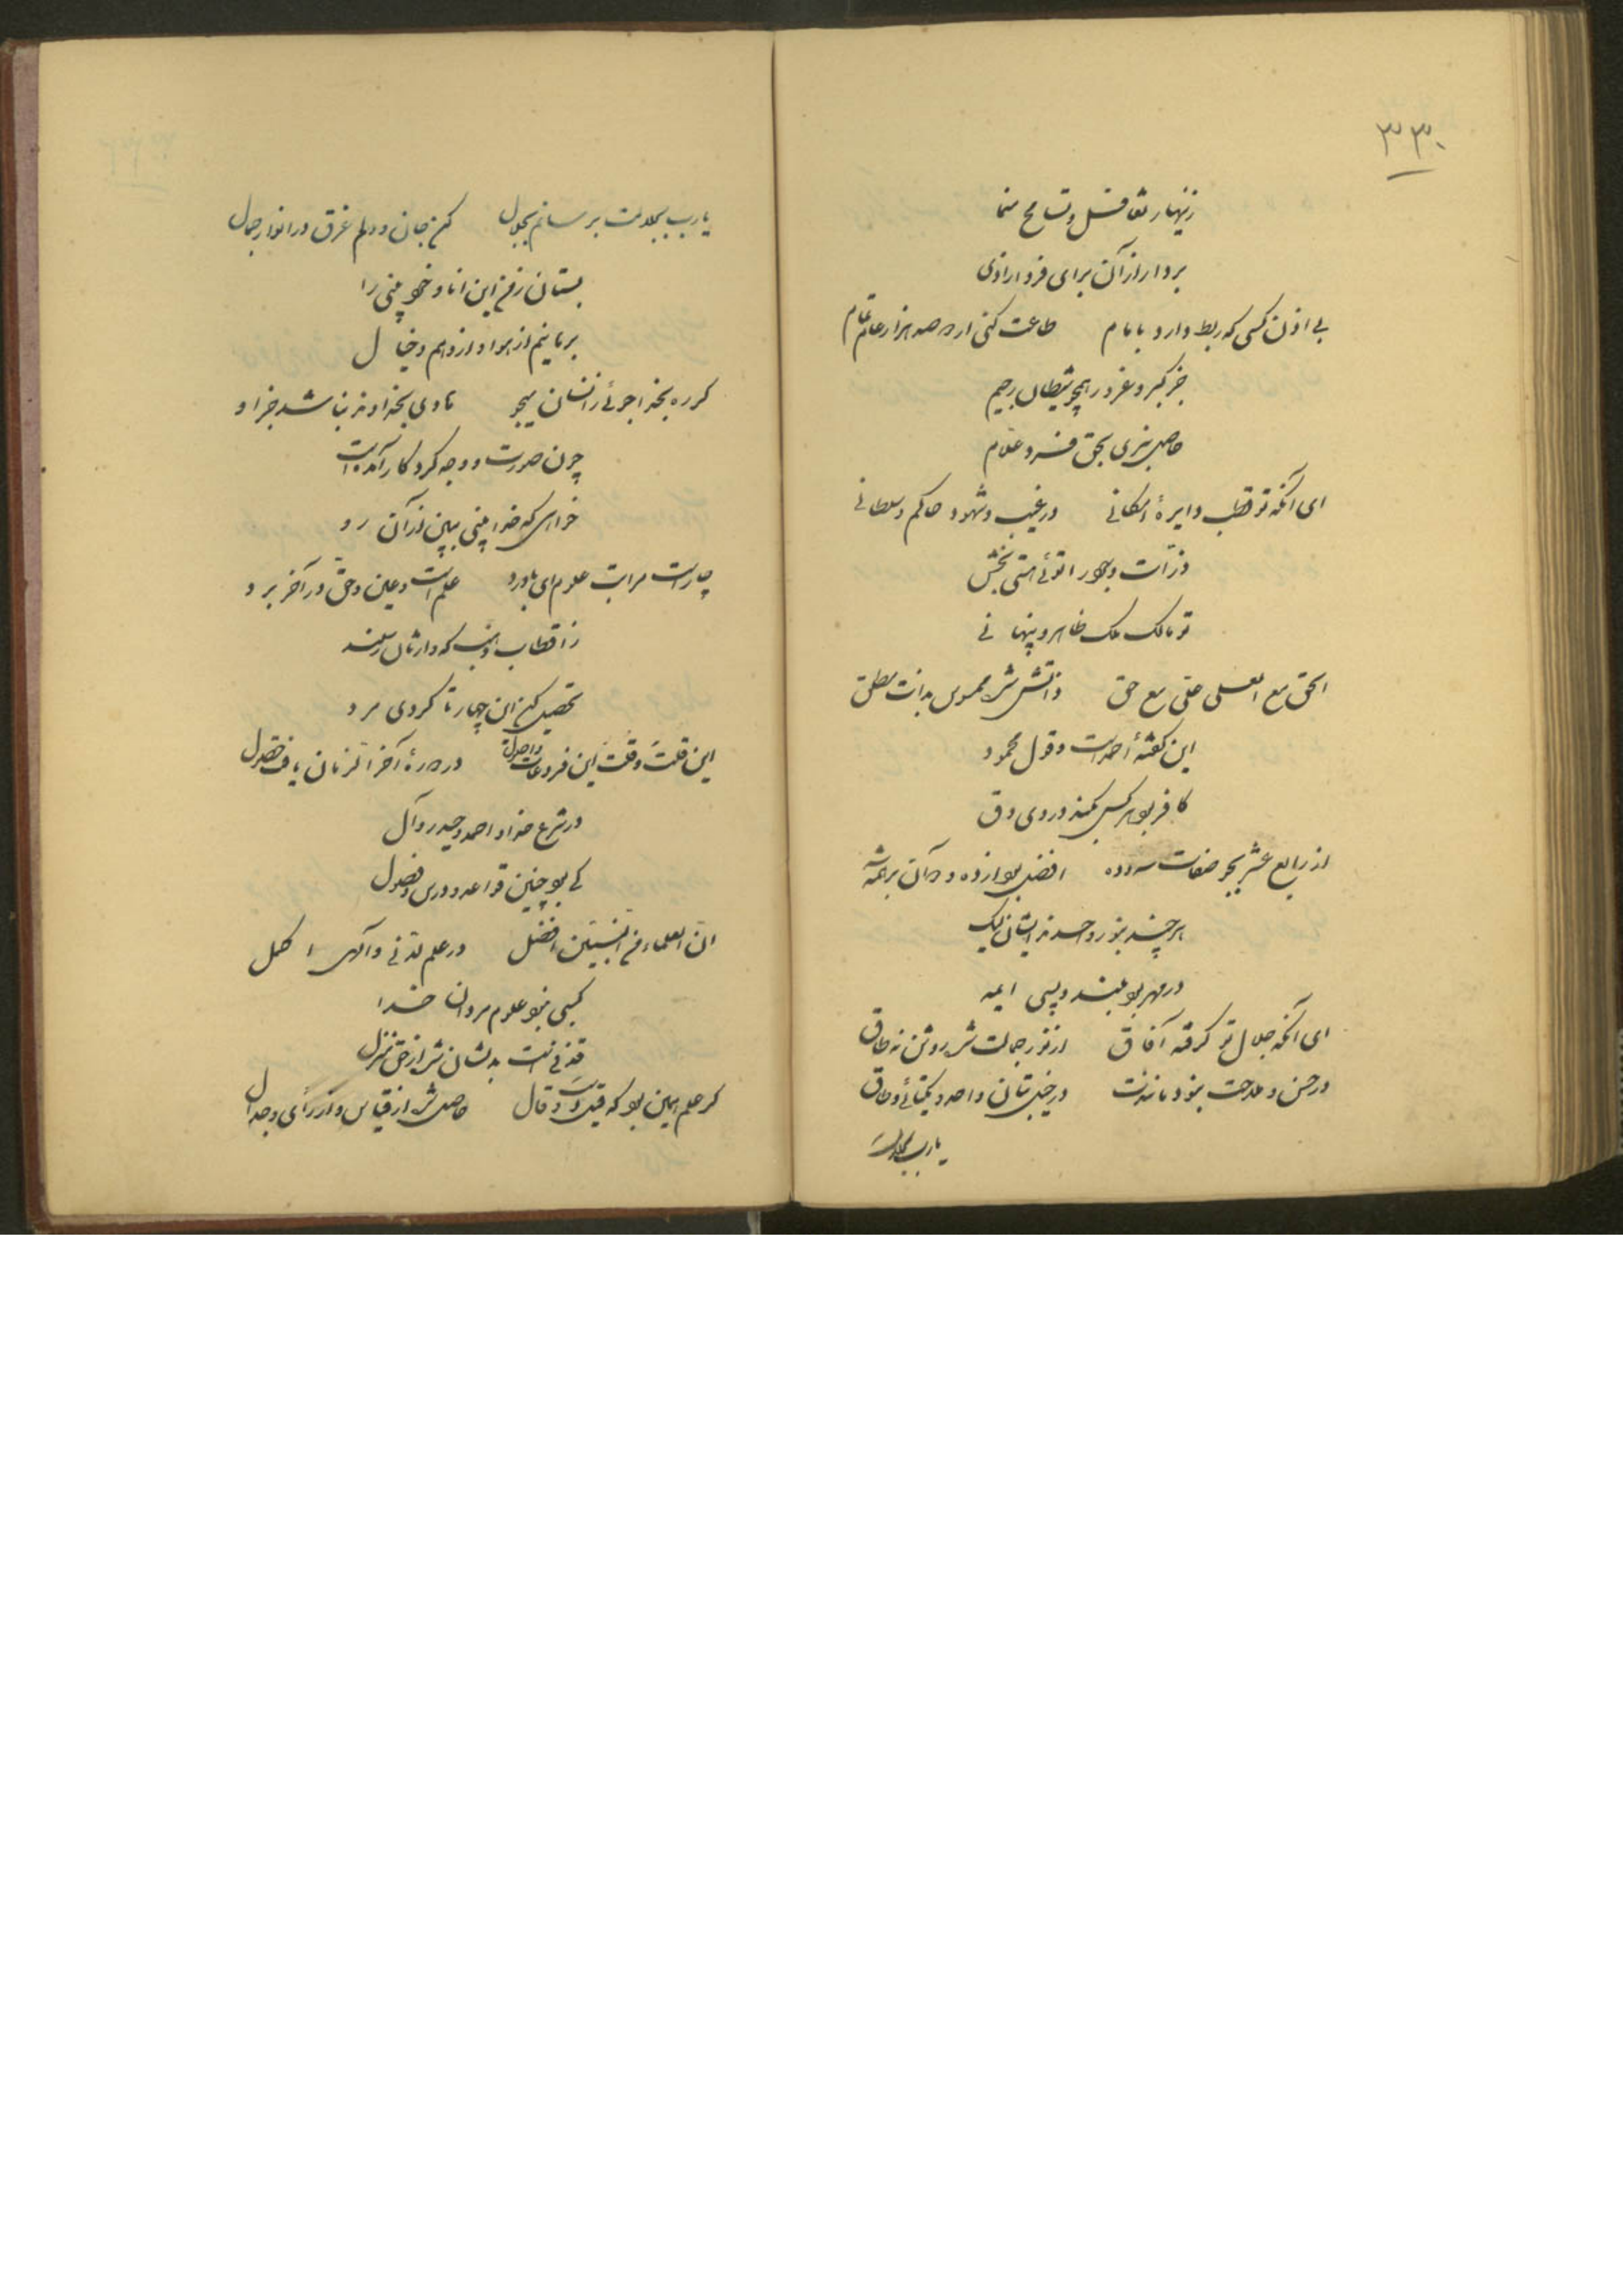 ۳۳۰
زینهار تغافل و تسامح منما
بردار از آن برای فردا زادی
بی اذن کسی که ربط دارد بامام طاعت کنی ار صد هزار عام تمام
جز کبر و غرور همچو شیطان رجیم
حاصل نبری بحق فرد علام
ای آنکه تو قطب دایرهٔ امکانی در غیب و شهود حاکم و سلطانی
ذرات وجود را توئی هستی بخش
تو مالک ملک ظاهر و پنهانی
الحق مع العلی علی مع حق ذاتش شد ممسوس بذات مطلق
این گفتهٔ احمد است و قول محمود
کافر بود هر کس کند در وی دق
از رابع عشر بجو صفات سه و ده افضل بود از ده و آن بر همه
هر چند بنور واحدند ایشان لیک
در مهر بود بلند و پس ایمه
ای آنکه جلال تو گرفته آفاق از نور جمالت شد روشن نه طاق
در حسن و ملاحت نبود مانندت در خیل بتان واحد و یکتائی و طاق
یارب بجلالت
یارب بجلالت برسانم بجلال کن جان و دلم غرق در انوار جمال
بستان ز من این انا و خودبینی را
برهانیم از هوا و از وهم و خیال
گر ره بخدا جوئی ز انسان میجو هادی بخداوند نباشد جز او
چون صورت و وجه کردگار آمده است
خواهی که خدا بینی ببین زآن رو
چار است مراتب علوم ای باورد علم است و عین و حق و در آخر برد
ز اقطاب که وارثان رسلند
تحصیل کن این چهار تا گردی مرد
این قلت و قلت این فروعات و اصول در دورهٔ آخر الزمان یافت حصول
در شرع خدا و احمد و حیدر و آل
کی بود چنین قواعد و درس و فصول
ان العلماء من النبیین افضل در علم لدنی و آگهی اکمل
کسبی نبود علوم مردان خدا
قذفی است بدلشان شد از حق منزل
گر علم همین بود که قیل است و قال حاصل شد از قیاس و از رأی و جدال